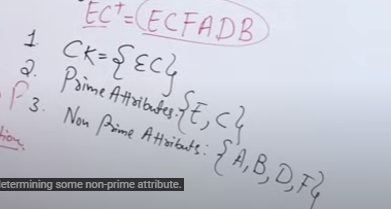 EC⁺ = ECFADB
1. CK = {EC}
2. Prime Attributes: {E, C}
3. Non Prime Attributs: {A, B, D, F}
etermining some non-prime attribute.